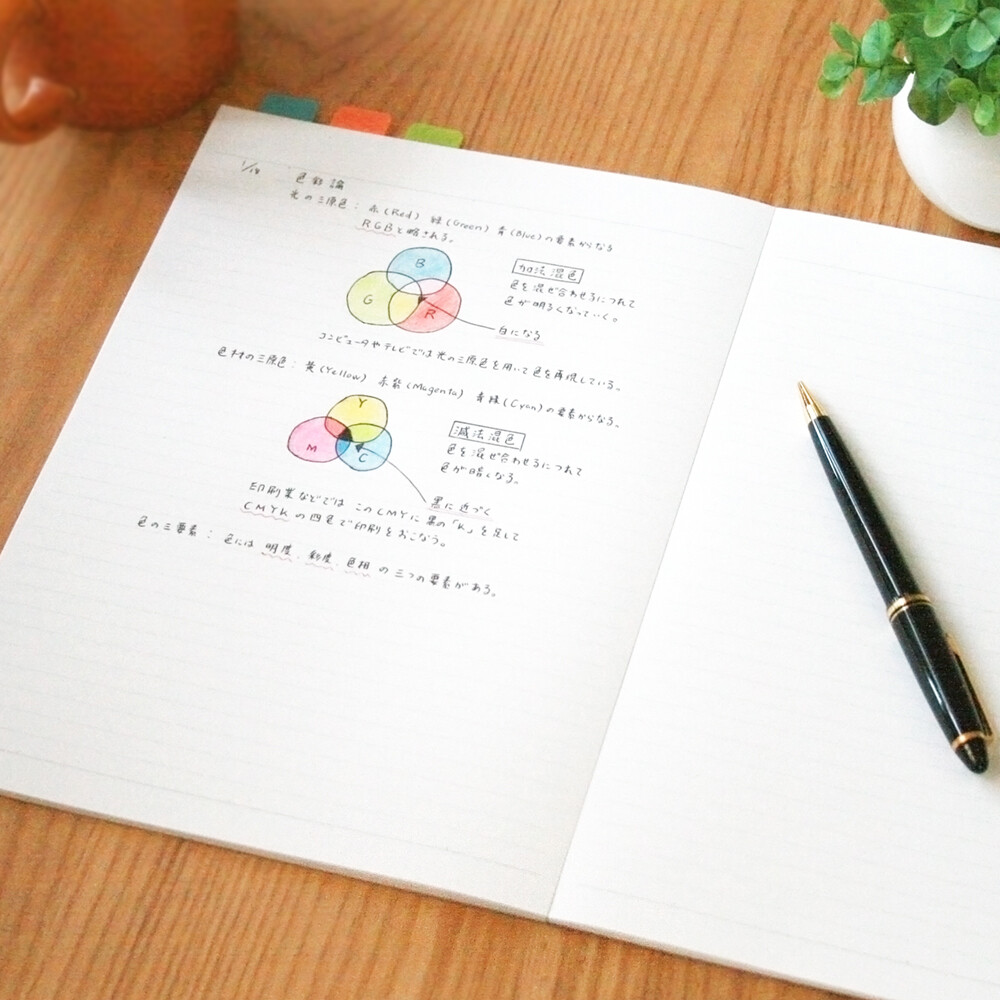 1/18
色彩論
光の三原色: 赤(Red) 緑(Green) 青(Blue)の要素からなる
RGBと略される。
B
G
R
加法混色
色を混ぜ合わせるにつれて
色が明るくなっていく。
白になる
コンピュータやテレビでは光の三原色を用いて色を再現している。
色材の三原色: 黄(Yellow) 赤紫(Magenta) 青緑(Cyan)の要素からなる。
Y
M
C
減法混色
色を混ぜ合わせるにつれて
色が暗くなる。
黒に近づく
印刷業などでは このCMYに黒の「K」を足して
CMYKの四色で印刷をおこなう。
色の三要素: 色には 明度、彩度、色相 の三つの要素がある。